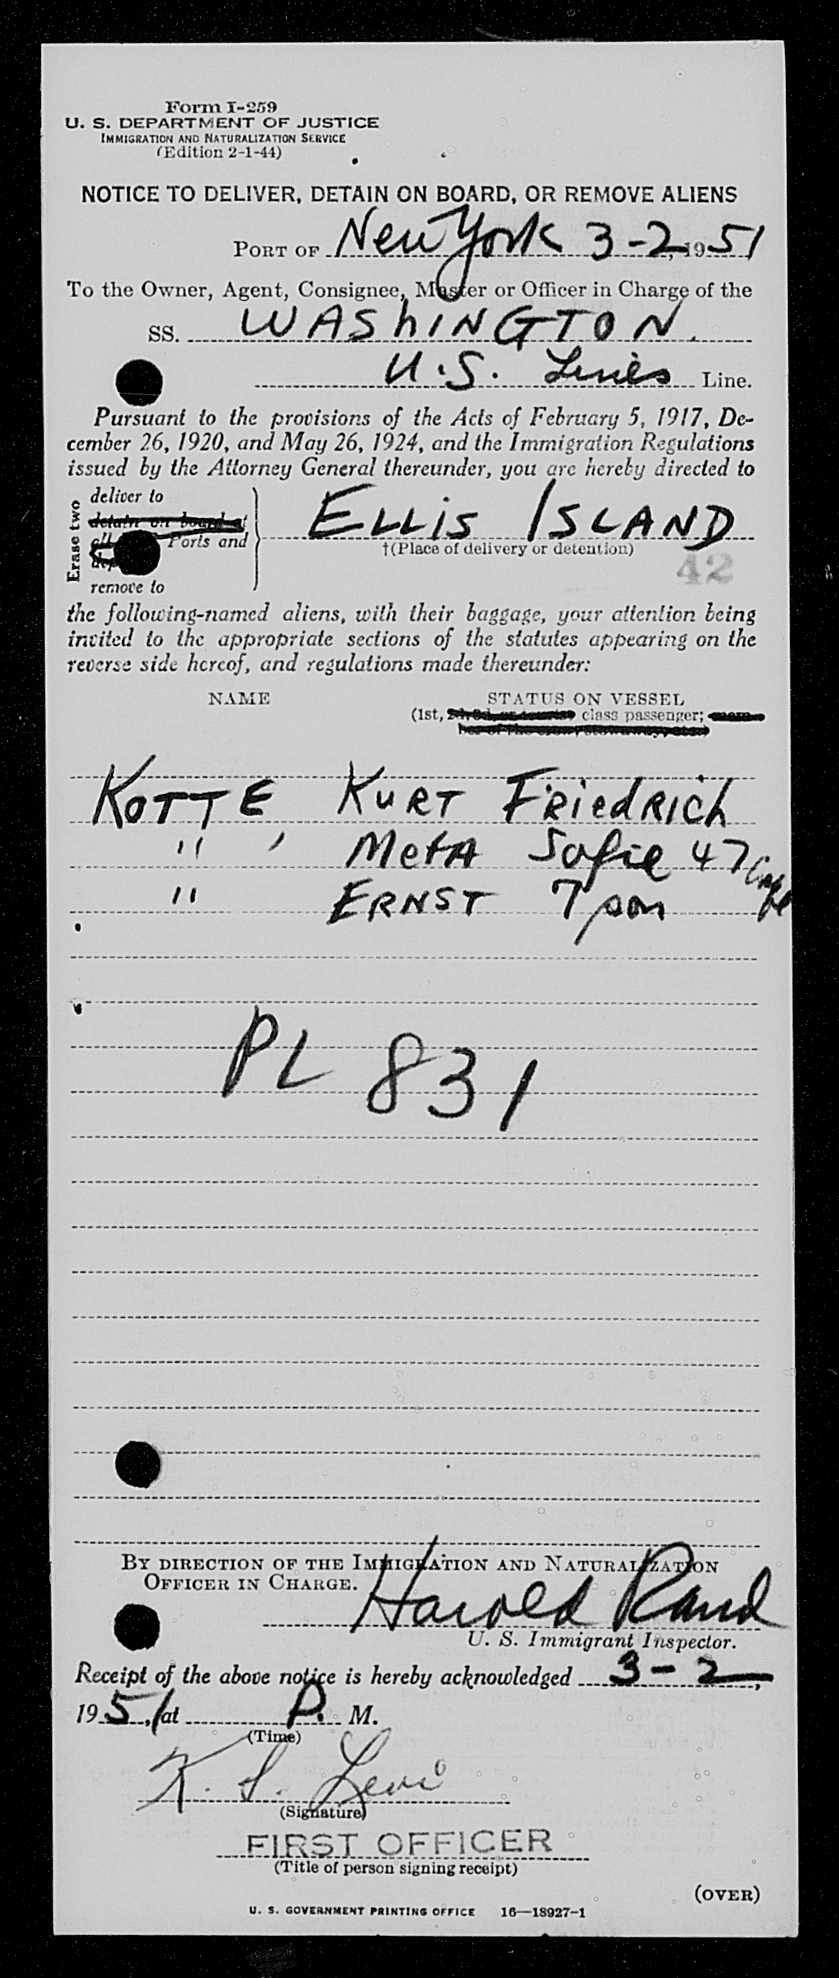 Form I-259
U. S. DEPARTMENT OF JUSTICE
IMMIGRATION AND NATURALIZATION SERVICE
(Edition 2-1-44)
NOTICE TO DELIVER, DETAIN ON BOARD, OR REMOVE ALIENS
PORT OF New York 3-2, 1951
To the Owner, Agent, Consignee, Master or Officer in Charge of the
SS. WASHINGTON
U.S. Lines Line.
Pursuant to the provisions of the Acts of February 5, 1917, De-
cember 26, 1920, and May 26, 1924, and the Immigration Regulations
issued by the Attorney General thereunder, you are hereby directed to
Erase two
deliver to
detain on board at
all Ports and
remove to
ELLIS ISLAND
†(Place of delivery or detention)
42
the following-named aliens, with their baggage, your attention being
invited to the appropriate sections of the statutes appearing on the
reverse side hereof, and regulations made thereunder:
NAME STATUS ON VESSEL
(1st, 2d, 3d, or tourist class passenger; mem-
ber of the crew, stowaway, etc.)
KOTTE, KURT FRiedRich
" , MetA Sofie 47
" ERNST 7 son
PL 831
BY DIRECTION OF THE IMMIGRATION AND NATURALIZATION
OFFICER IN CHARGE.
Harold Rand
U. S. Immigrant Inspector.
Receipt of the above notice is hereby acknowledged 3-2,
1951, at P. M.
(Time)
K. S. Levi
(Signature)
FIRST OFFICER
(Title of person signing receipt)
(OVER)
U. S. GOVERNMENT PRINTING OFFICE 16—18927-1